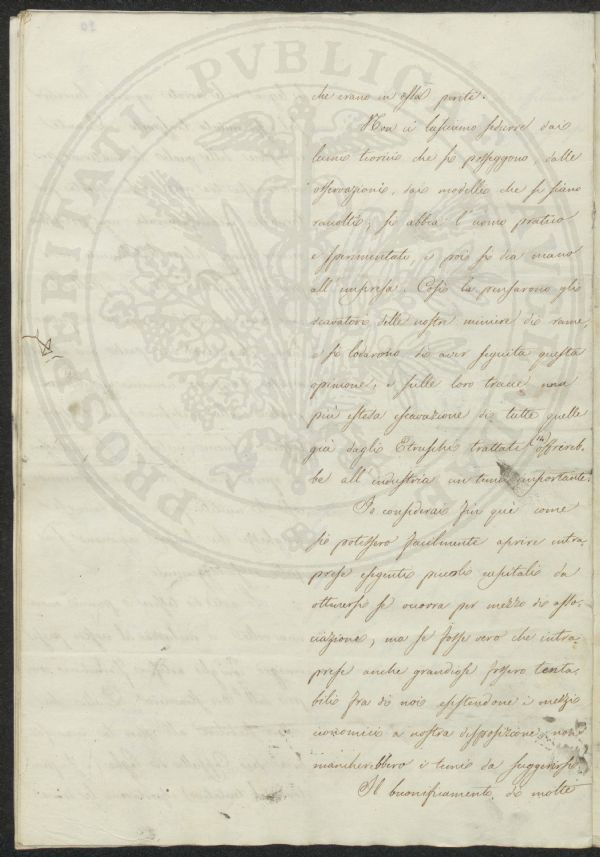 che erano in essa periti.
Non ci lasciamo sedurre dai
teorici che si posseggono, dalle
osservazioni, dai modelli che si siano
raccolti; si abbia l'uomo pratico
e sperimentato, e poi si dia mano
all'impresa. Così la pensarono gli
scavatori delle nostre miniere di rame,
e si lodarono di aver seguita questa
opinione; e sulle loro tracce una
più estesa escavazione di tutte quelle
già dagli Etruschi trattati offrereb-
be all'industria un tema importante.
Io considerai fin qui come
si potessero facilmente aprire intra-
prese esigenti piccoli capitali da
ottenersi se occorra per mezzo di asso-
ciazione, ma se fosse vero che intra-
prese anche grandiose fossero tenta-
bili fra di noi esistendone i mezzi
economici a nostra disposizione, non
mancherebbero i temi da suggerirsi.
Il buonificamento di molte
PROSPERITATI PVBLIC